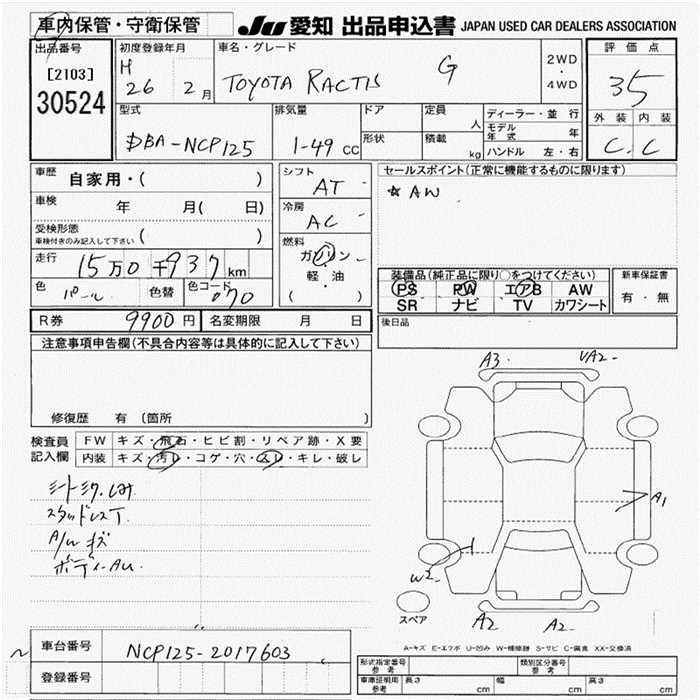 車内保管・守衛保管
JU 愛知 出品申込書 JAPAN USED CAR DEALERS ASSOCIATION
出品番号
[2103]
30524
初度登録年月
H 26 2月
車名・グレード
TOYOTA RACTIS G
2WD
・
4WD
評価点
3.5
外装 内装
C. C
型式
DBA-NCP125
排気量
1-49 CC
ドア
形状
定員 人
積載 kg
ディーラー・並行
モデル年式 年
ハンドル 左・右
車歴 自家用・( )
車検 年 月( 日)
受検形態 ( )
車検付きのみ記入して下さい
走行 15万0千937km
色 パール 色替 色コード 070
シフト
AT
冷房
AC
燃料
ガソリン
・
軽・油
( )
セールスポイント(正常に機能するものに限ります)
☆ AW
装備品(純正品に限り○をつけてください)
PS PW エアB AW
SR ナビ TV カワシート
新車保証書
有・無
後日品
R券 9900円 名変期限 月 日
注意事項申告欄(不具合内容等は具体的に記入して下さい)
修復歴 有 (箇所
検査員
記入欄
FW キズ・飛石・ヒビ割・リペア跡・X要
内装 キズ・汚レ・コゲ・穴・スレ・キレ・破レ
スタッドレスT.
A/W キズ
A3 A2
A1
W2
A2 A2
スペア
A-キズ E-エクボ U-凹み W-補修跡 S-サビ C-腐食 XX-交換済
車台番号 NCP125-2017603
登録番号
形式指定番号 参考
類別区分番号 参考
車庫証明用 参考 長さ cm 幅 cm 高さ cm